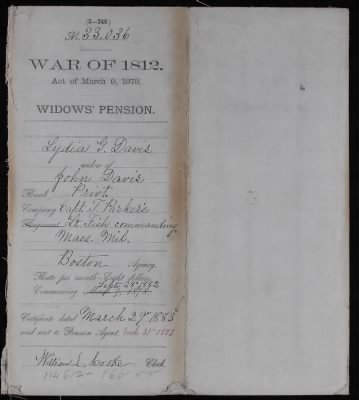 (3—246.)
No. 33,036
WAR OF 1812.
Act of March 9, 1878.
WIDOWS' PENSION.
Lydia G. Davis
widow of
John Davis
Rank Privt
Company Capt. T. Parker's
Regiment Lt. Fish commanding
Mass. Mil.
Boston Agency.
Rate per month Eight dollars
Sept. 28" 1882
Commencing March 9, 1878.
Certificate dated March 29" 1883
and sent to Pension Agent, Mch 31st 1883
William L Cooke Clerk.